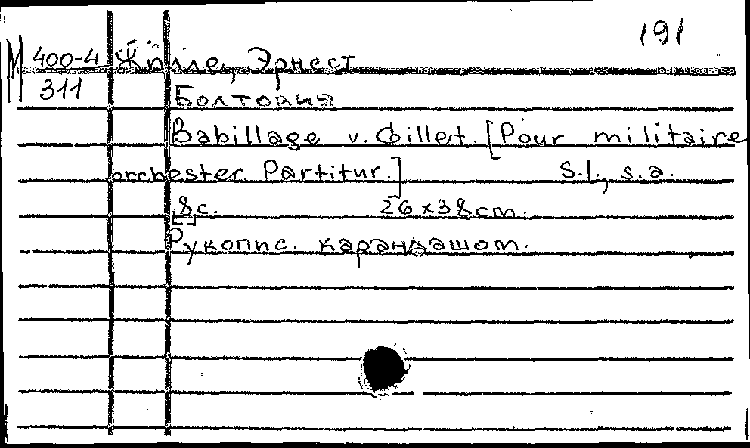 191
М 400-4 Жилле, Эрнест
311 Болтовня
Babillage v. Gillet. [Pour militaire
orchester. Partitur.] S.l., s.a.
[8]с. 26×38cm.
Рукопис. карандашом.